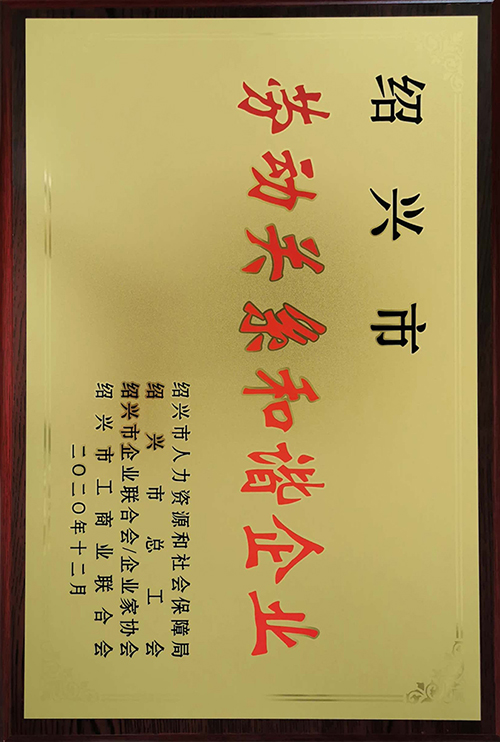 绍兴市
劳动关系和谐企业
绍兴市人力资源和社会保障局
绍兴市总工会
绍兴市企业联合会/企业家协会
绍兴市工商业联合会
二〇二〇年十二月